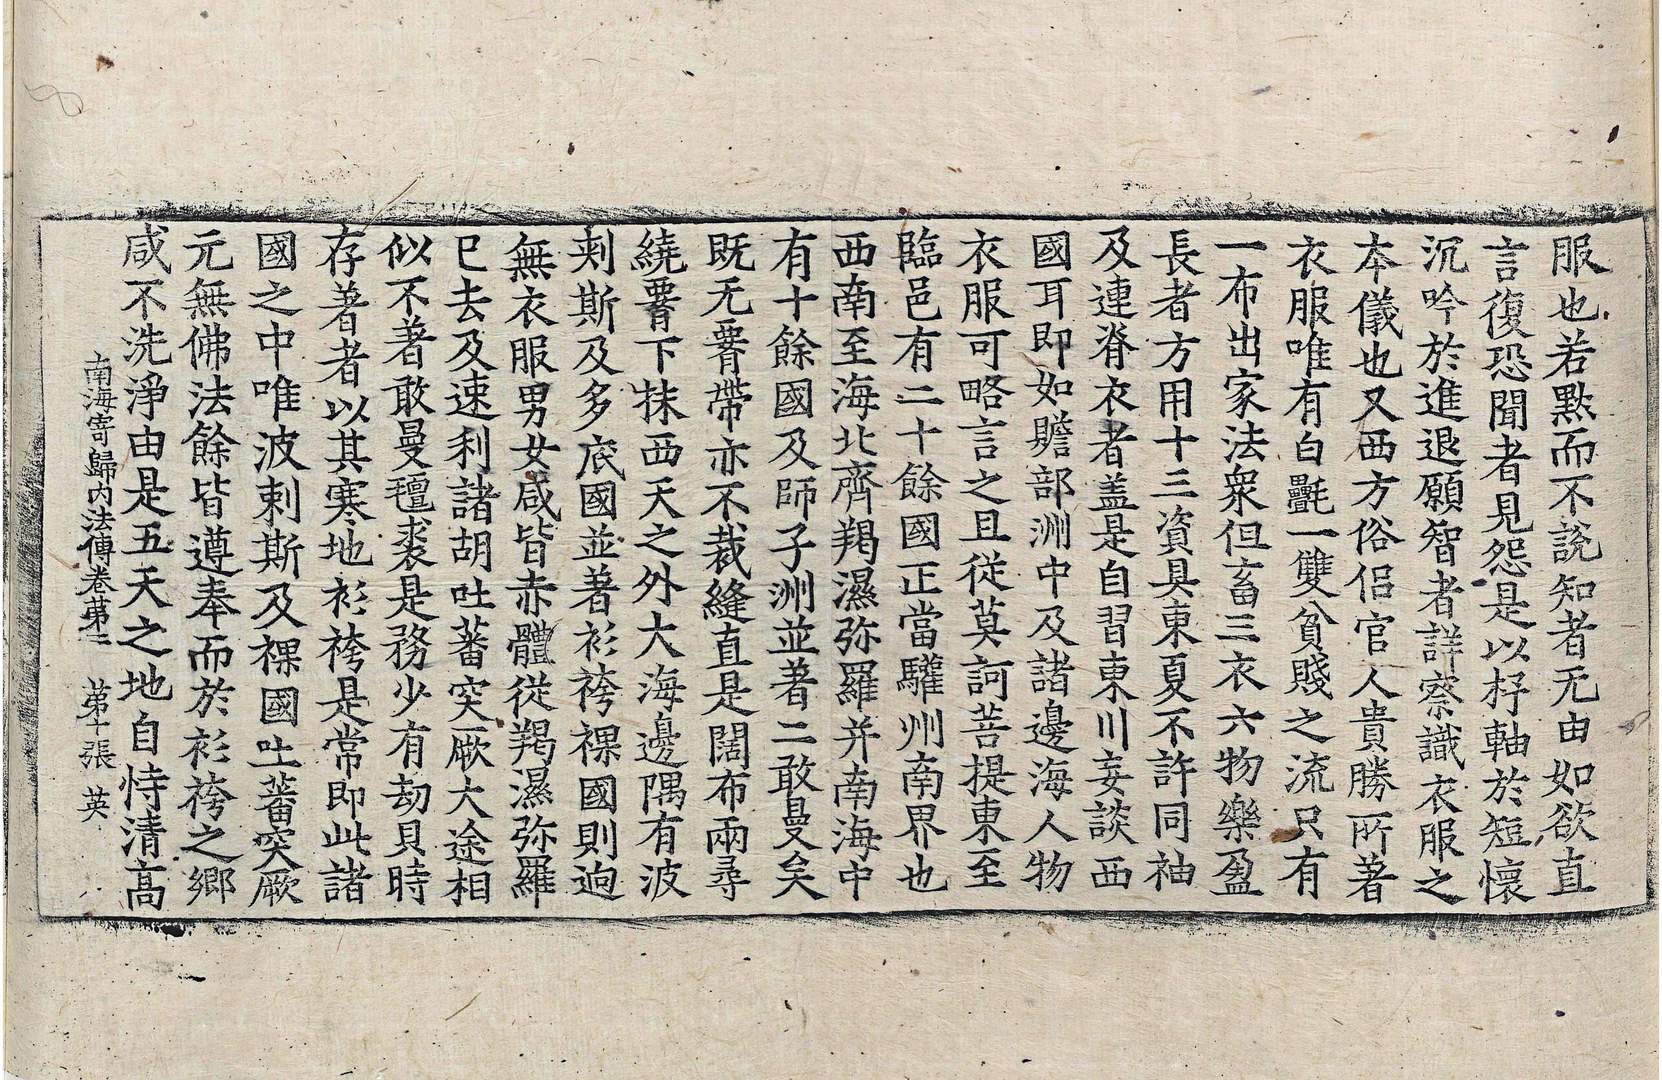 服也若點而不說知者无由如欲直
言復恐聞者見怨是以杼軸於短懷
沉吟於進退願智者詳察識衣服之
本儀也又西方俗侶官人貴勝所著
衣服唯有白㲲一雙貧賤之流只有
一布出家法衆但畜三衣六物樂盈
長者方用十三資具東夏不許同袖
及連脊衣者盖是自習東川妄談西
國耳即如贍部洲中及諸邊海人物
衣服可略言之且從莫訶菩提東至
臨邑有二十餘國正當驩州南界也
西南至海北齊羯濕弥羅并南海中
有十餘國及師子洲並著二敢曼矣
既无𦝫帶亦不裁縫直是闊布兩尋
繞𦝫下抹西天之外大海邊隅有波
剌斯及多底國並著衫袴裸國則迥
無衣服男女咸皆赤體從羯濕弥羅
已去及速利諸胡吐蕃突厥大途相
似不著敢曼氊裘是務少有劫貝時
存著者以其寒地衫袴是常即此諸
國之中唯波剌斯及裸國吐蕃突厥
元無佛法餘皆遵奉而於衫袴之鄉
咸不洗淨由是五天之地自恃清高
南海寄歸內法傳卷第二 第十張 英